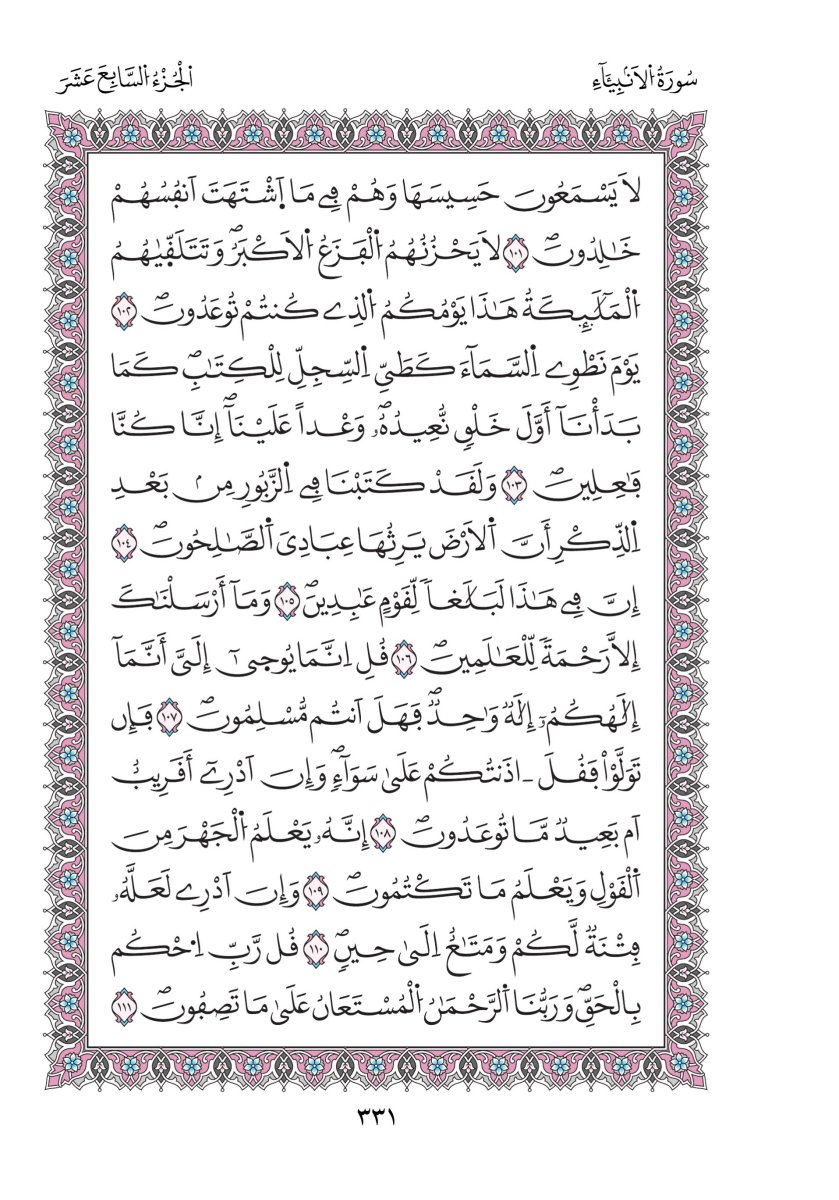 سُورَةُ اُ۬لَانۢبِيَآءِ
اَ۬لْجُزْءُ اُ۬لسَّابِعَ عَشَرَ
لَا يَسْمَعُونَ حَسِيسَهَا وَهُمْ فِے مَا اَ۪شْتَهَتَ اَنفُسُهُمْ
خَٰلِدُونَۖ ١٠١ لَا يَحْزُنُهُمُ اُ۬لْفَزَعُ اُ۬لَاكْبَرُۖ وَتَتَلَقّ۪يٰهُمُ
اُ۬لْمَلَٰٓئِكَةُ هَٰذَا يَوْمُكُمُ اُ۬لذِے كُنتُمْ تُوعَدُونَۖ ١٠٢
يَوْمَ نَطْوِے اِ۬لسَّمَآءَ كَطَيِّ اِ۬لسِّجِلِّ لِلْكِتَٰبِۖ كَمَا
بَدَأْنَآ أَوَّلَ خَلْقٖ نُّعِيدُهُۥۖ وَعْداً عَلَيْنَآۖ إِنَّا كُنَّا
فَٰعِلِينَۖ ١٠٣ وَلَقَدْ كَتَبْنَا فِے اِ۬لزَّبُورِ مِنۢ بَعْدِ
اِ۬لذِّكْرِ أَنَّ اَ۬لَارْضَ يَرِثُهَا عِبَادِيَ اَ۬لصَّٰلِحُونَۖ ١٠٤
إِنَّ فِے هَٰذَا لَبَلَٰغاٗ لِّقَوْمٍ عَٰبِدِينَۖ ١٠٥ وَمَآ أَرْسَلْنَٰكَ
إِلَّا رَحْمَةٗ لِّلْعَٰلَمِينَۖ ١٠٦ قُلِ اِنَّمَا يُوح۪يٰٓ إِلَيَّ أَنَّمَآ
إِلَٰهُكُمُۥٓ إِلَٰهٞ وَٰحِدٞۖ فَهَلَ اَنتُم مُّسْلِمُونَۖ ١٠٧ فَإِن
تَوَلَّوْاْ فَقُلَ ـ اٰذَنتُكُمْ عَلَيٰ سَوَآءٖۖ وَإِنَ اَدْرِےٓ أَقَرِيبٌ
اَم بَعِيدٞ مَّا تُوعَدُونَۖ ١٠٨ إِنَّهُۥ يَعْلَمُ اُ۬لْجَهْرَ مِنَ
اَ۬لْقَوْلِ وَيَعْلَمُ مَا تَكْتُمُونَۖ ١٠٩ وَإِنَ اَدْرِے لَعَلَّهُۥ
فِتْنَةٞ لَّكُمْ وَمَتَٰعٌ اِلَيٰ حِينٖۖ ١١٠ قُل رَّبِّ اِ۟حْكُم
بِالْحَقِّۖ وَرَبُّنَا اَ۬لرَّحْمَٰنُ اُ۬لْمُسْتَعَانُ عَلَيٰ مَا تَصِفُونَۖ ١١١
٣٣١